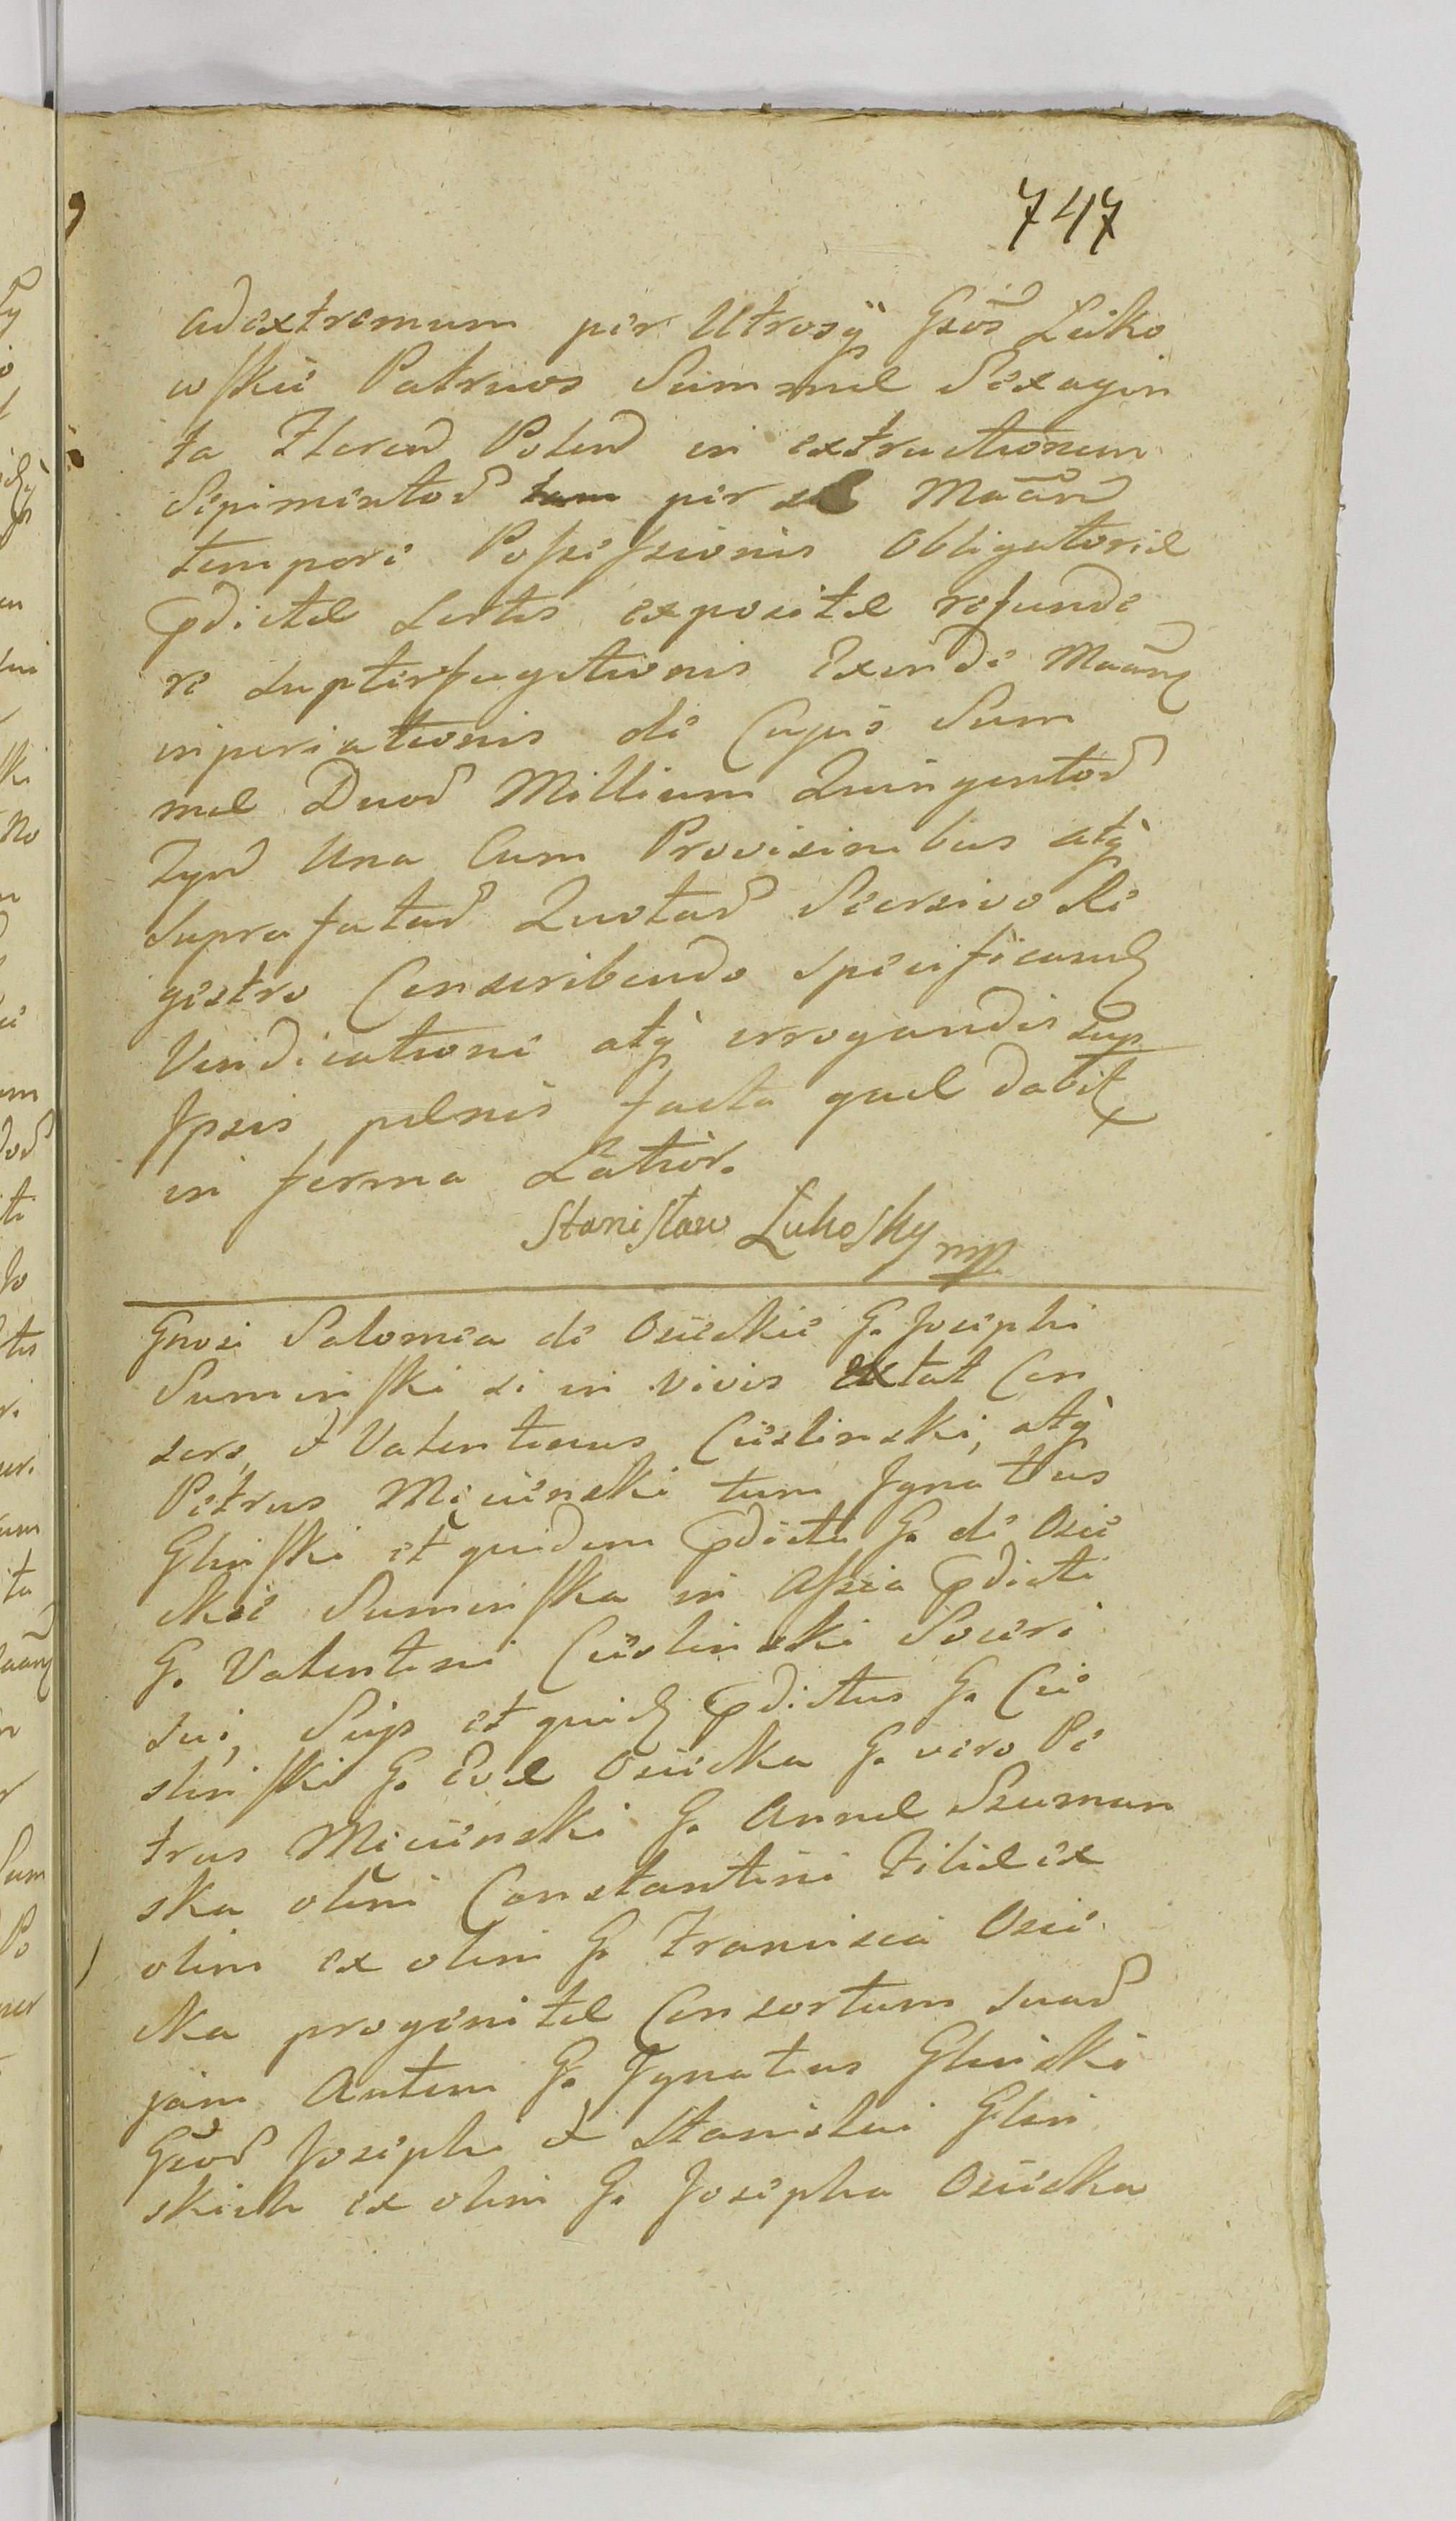 747
ad extremum per Utrosq̃ Gsos Luko
wskie Patruos Summæ Sexagin
ta Floren Polon in extructionem
Sepimentor per se Maan
tempore Possessionis Obligatoriæ
pdictæ Sortis expositæ refunde
re supterfugitionis Exinde Maanq
inperiationis de Cujus Sum
mæ Duor Millium Quingentor
Zyn Una Cum Provisinibus atq̃
Suprafatar Quotar Seorsivo Re
gestro Conscribendo Specificanq
Vindicatione atq̃ irrogandis sup
Ipsis pænis facta quæ dabit
in forma Latior.
Stanisław Łukosky mp
Gnosi Salomea de Osieckie G. Josephi
Suminski si in vivis extat Con
sors, et Valentinus Cieslinski, atq̃
Petrus Miecienski tum Ignatius
Glinski et quidem pdicta G. de Osie
ckie Suminska in Assia pdicti
G. Valentini Cieslinski Soceri
sui, Sup et quid pdictus G. Cie
slinski G. Evæ Osiecka G. vero Pe
trus Miecienski G. Annæ Szuman
ska olim Constantini Filiæ ex
olim ex olim G. Francisca Osie
cka progenitæ Consortum suar
jam Autem G. Ignatius Glinski
Gsor Josephi et Stanislai Glin
skich ex olim G. Josepha Osiecka